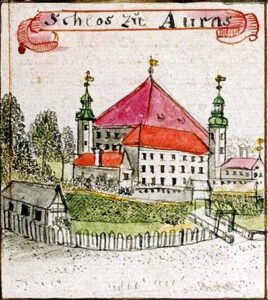 Schlos zŭ Auras